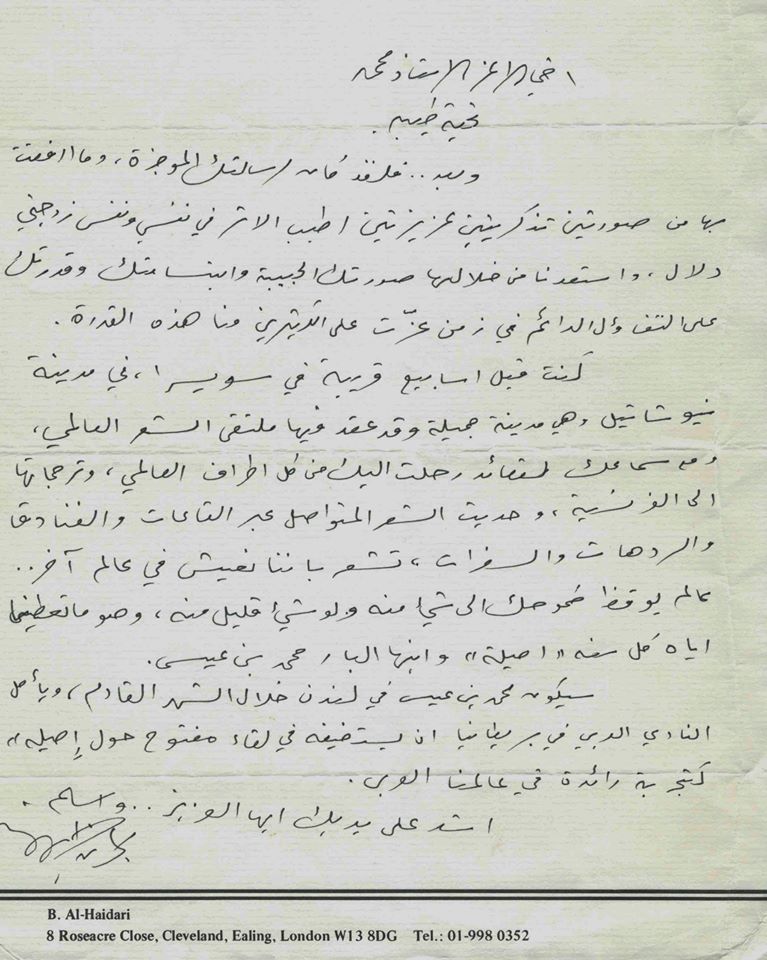 اخي الاعز الاستاذ محمد
تحية طيبه
وبعد .. فلقد كان لرسالتك الموجزة ، وما ارفقت
بها من صورتين تذكريتين عزيزتين اطيب الاثر في نفسي ونفس زوجتي
دلال ، واستعدنا من خلالها صورتك الحبيبة وابتسامتك وقدرتك
على التفاؤل الدائم في زمن عزّت على الكثيرين منا هذه القدرة .
كنت قبل اسابيع قريبة في سويسرا ، في مدينة
نيوشاتيل وهي مدينة جميلة وقد عقد فيها ملتقى الشعر العالمي ،
ومع سماعك لقصائد رحلت اليك من كل اطراف العالم ، وترجماتها
الى الفرنسية ، وحديث الشعر المتواصل عبر القاعات والفنادق
والردهات والسفرات ، تشعر باننا نعيش في عالم آخر ..
عالم يوقظ طموحك الى شيء منه ولو شيء قليل منه ، وهو ما تعطينا
اياه كل سنه « اصيلة » وابنها البار محمد بن عيسى .
سيكون محمد بن عيسى في لندن خلال الشهر القادم ، ويأمل
النادي العربي في بريطانيا ان يستضيفه في لقاء مفتوح حول إصيلة »
كتجربة رائدة في عالمنا العربي .
اشد على يديك ايها العزيز .. واسلم .
B. Al-Haidari
8 Roseacre Close, Cleveland, Ealing, London W13 8DG Tel.: 01-998 0352